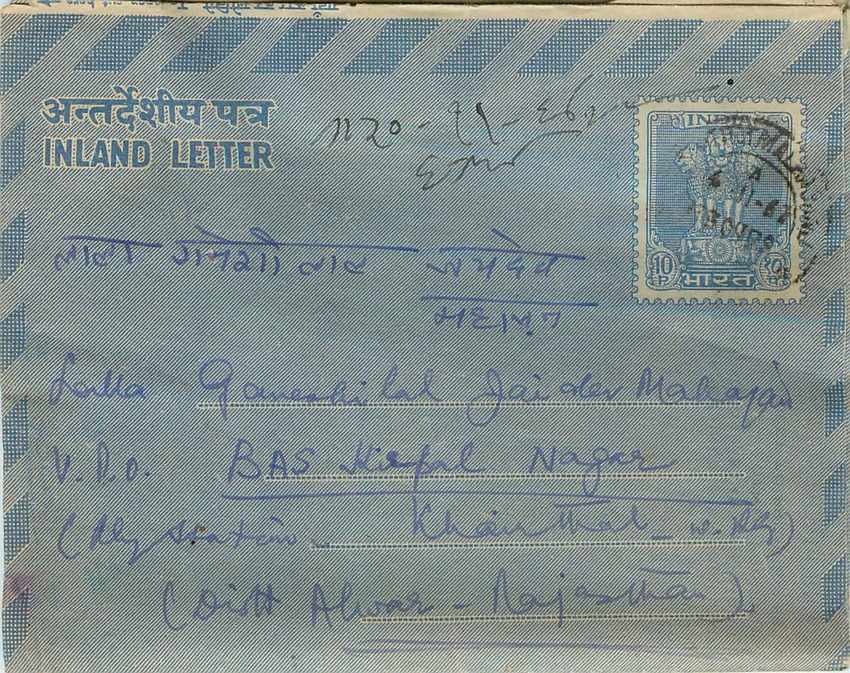 अन्तर्देशीय पत्र
INLAND LETTER
INDIA
10 भारत १०
लाला गनेशी लाल जयदेव
महाजन
Lalla Ganeshi lal Jai dev Mahajan
V.P.O. BAS Kirpal Nagar
(Rly station Khairthal - W.Rly)
(Distt Alwar - Rajasthan)